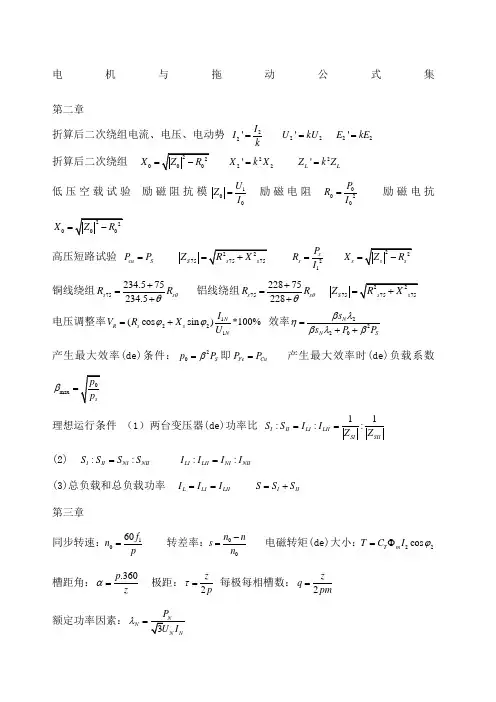 电机与拖动公式集
第二章
折算后二次绕组电流、电压、电动势 I₂' = I₂/k  U₂' = kU₂  E₂' = kE₂
折算后二次绕组 X₀ = √(|Z₀|² − R₀²)  X₂' = k²X₂  Z_L' = k²Z_L
低压空载试验 励磁阻抗模 |Z₀| = U₁/I₀ 励磁电阻 R₀ = P₀/I₀² 励磁电抗
X₀ = √(|Z₀|² − R₀²)
高压短路试验 P_cu = P_S  |Z_S75| = √(R²_s75 + X²_s75)  R_s = P_s/I₁²  X_s = √(|Z_s|² − R_s²)
铜线绕组 R_s75 = (234.5 + 75)/(234.5 + θ) R_sθ 铝线绕组 R_s75 = (228 + 75)/(228 + θ) R_sθ  |Z_S75| = √(R²_s75 + X²_s75)
电压调整率 V_R = (R_s cosφ₂ + X_s sinφ₂) I_1N/U_1N *100% 效率 η = βs_Nλ₂/(βs_Nλ₂ + P₀ + β²P_S)
产生最大效率(de)条件: p₀ = β²P_S 即 P_Fe = P_Cu 产生最大效率时(de)负载系数
β_max = √(p₀/p_s)
理想运行条件 （1）两台变压器(de)功率比 S_I : S_II = I_LI : I_LII = 1/|Z_SI| : 1/|Z_SII|
(2) S_I : S_II = S_NI : S_NII  I_LI : I_LII = I_NI : I_NII
(3)总负载和总负载功率 I_L = I_LI = I_LII  S = S_I + S_II
第三章
同步转速: n₀ = 60f₁/p 转差率: s = (n₀ − n)/n₀ 电磁转矩(de)大小: T = C_TΦ_mI₂cosφ₂
槽距角: α = p.360/z 极距: τ = z/2p 每极每相槽数: q = z/2pm
额定功率因素: λ_N = P_N/(√3U_NI_N)